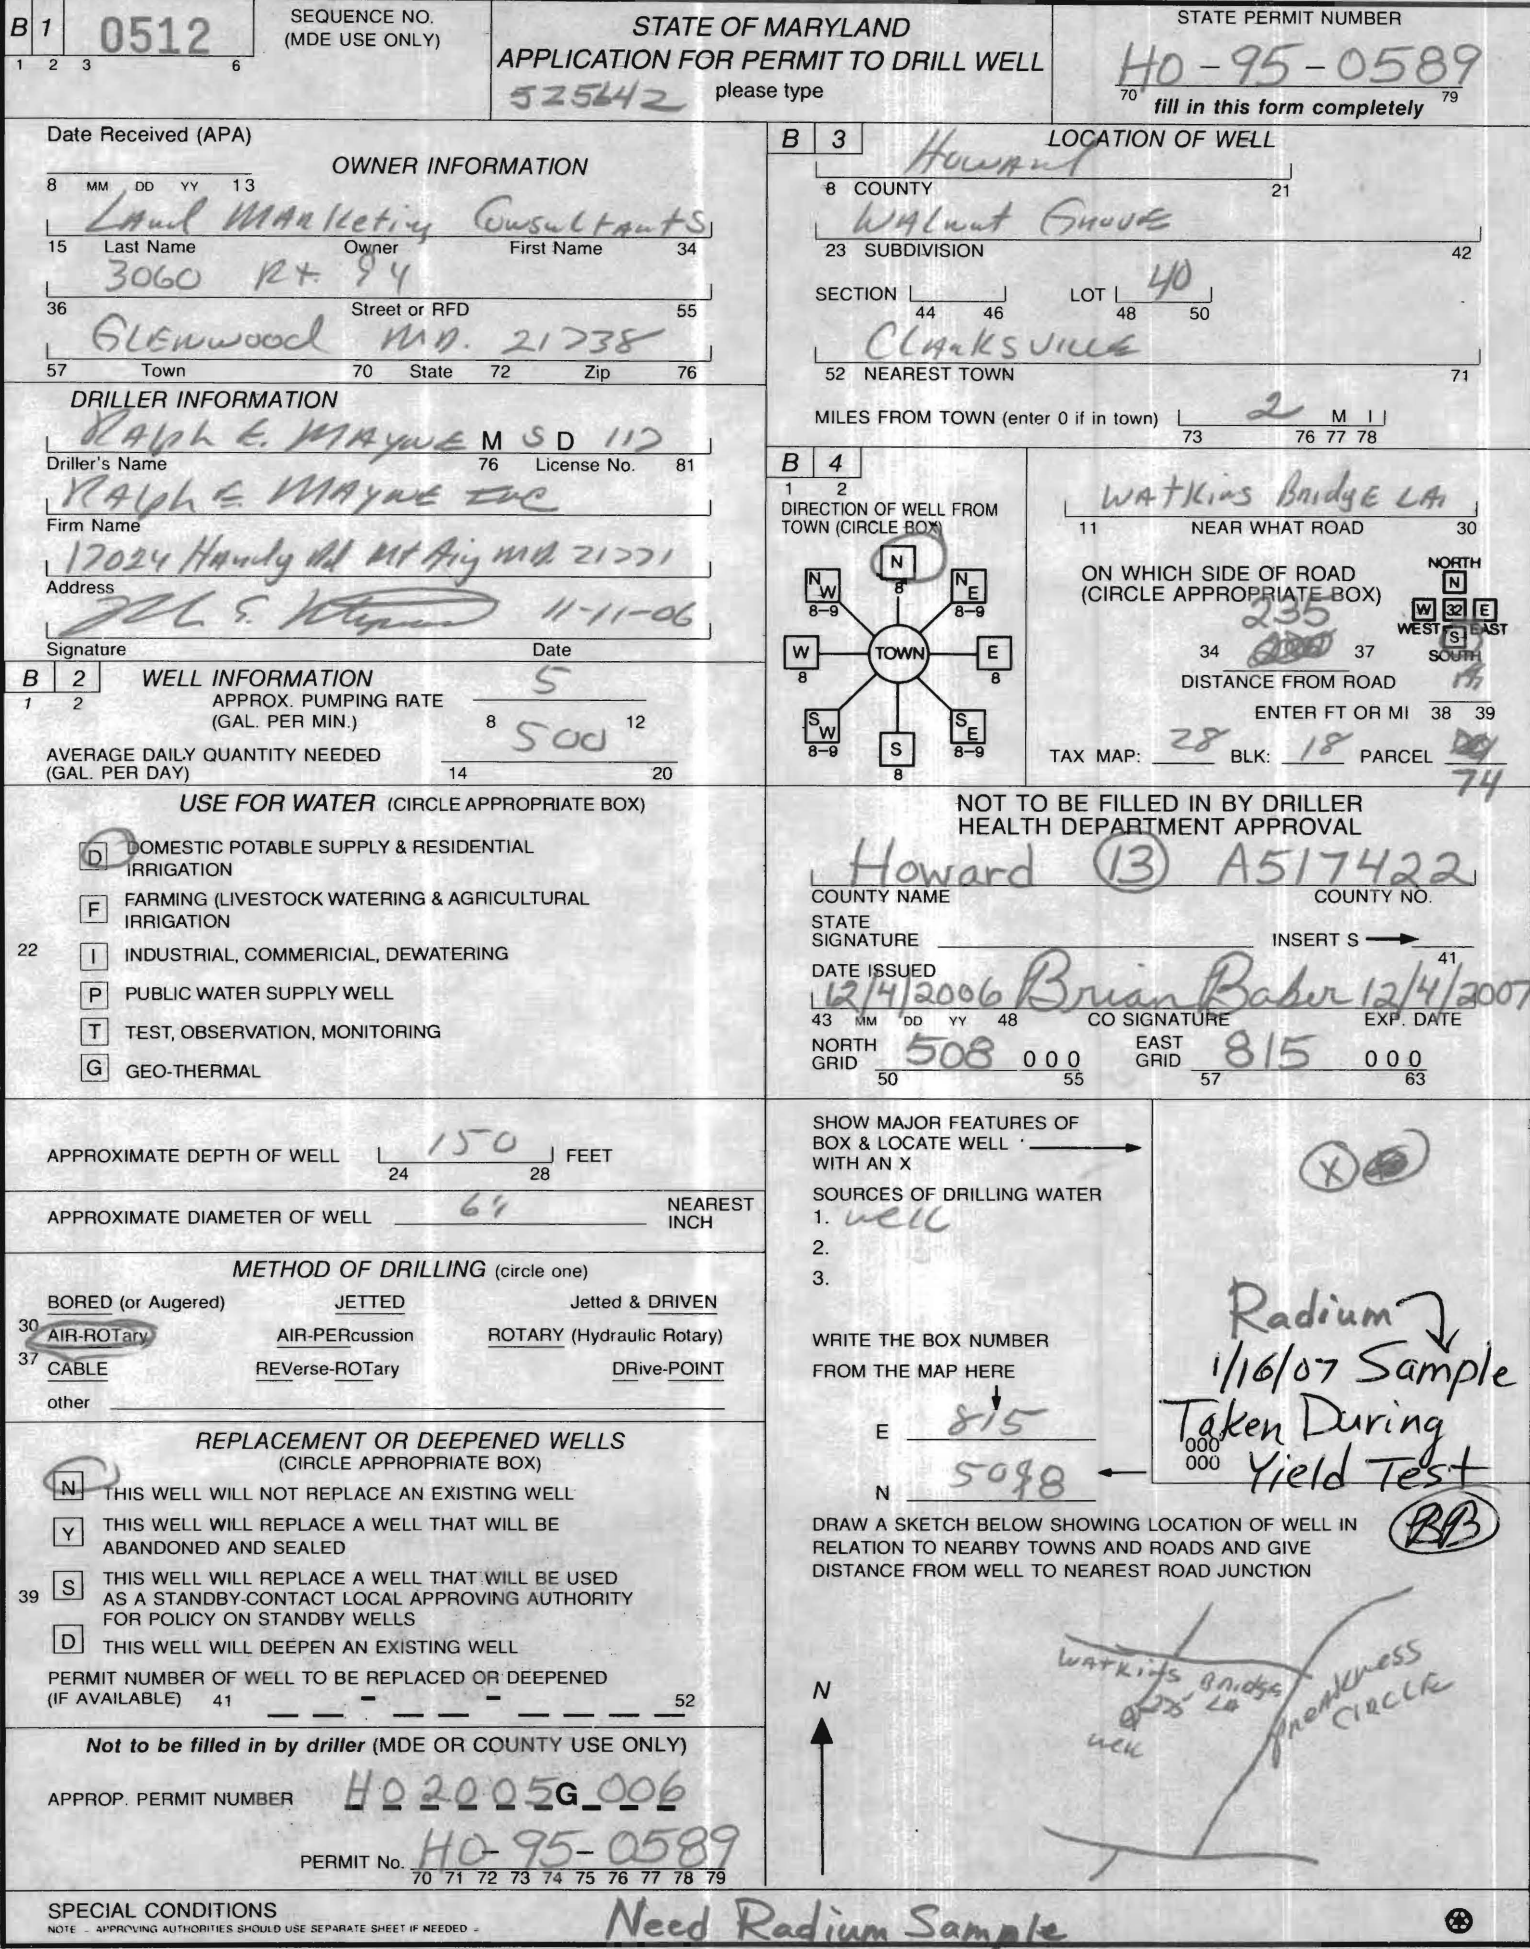 B 1 0512
1 2 3 6
SEQUENCE NO.
(MDE USE ONLY)
STATE OF MARYLAND
APPLICATION FOR PERMIT TO DRILL WELL
525642 please type
STATE PERMIT NUMBER
HO-95-0589
70 fill in this form completely 79
Date Received (APA)
OWNER INFORMATION
8 MM DD YY 13
Land Marketing Consultants
15 Last Name Owner First Name 34
3060 Rt. 94
36 Street or RFD 55
Glenwood MD. 21738
57 Town 70 State 72 Zip 76
DRILLER INFORMATION
Ralph E. Mayne M S D 117
Driller's Name 76 License No. 81
Ralph E. Mayne Inc
Firm Name
17024 Handy Rd Mt Airy MD. 21771
Address
11-11-06
Signature Date
B 2 WELL INFORMATION
1 2 APPROX. PUMPING RATE 5
(GAL. PER MIN.) 8 12
AVERAGE DAILY QUANTITY NEEDED 500
(GAL. PER DAY) 14 20
USE FOR WATER (CIRCLE APPROPRIATE BOX)
D DOMESTIC POTABLE SUPPLY & RESIDENTIAL
IRRIGATION
F FARMING (LIVESTOCK WATERING & AGRICULTURAL
IRRIGATION
22 I INDUSTRIAL, COMMERICIAL, DEWATERING
P PUBLIC WATER SUPPLY WELL
T TEST, OBSERVATION, MONITORING
G GEO-THERMAL
APPROXIMATE DEPTH OF WELL 150 FEET
24 28
APPROXIMATE DIAMETER OF WELL 6 NEAREST
INCH
METHOD OF DRILLING (circle one)
BORED (or Augered) JETTED Jetted & DRIVEN
30 AIR-ROTary AIR-PERcussion ROTARY (Hydraulic Rotary)
37 CABLE REVerse-ROTary DRive-POINT
other
REPLACEMENT OR DEEPENED WELLS
(CIRCLE APPROPRIATE BOX)
N THIS WELL WILL NOT REPLACE AN EXISTING WELL
Y THIS WELL WILL REPLACE A WELL THAT WILL BE
ABANDONED AND SEALED
39 S THIS WELL WILL REPLACE A WELL THAT WILL BE USED
AS A STANDBY-CONTACT LOCAL APPROVING AUTHORITY
FOR POLICY ON STANDBY WELLS
D THIS WELL WILL DEEPEN AN EXISTING WELL
PERMIT NUMBER OF WELL TO BE REPLACED OR DEEPENED
(IF AVAILABLE) 41 - - 52
Not to be filled in by driller (MDE OR COUNTY USE ONLY)
APPROP. PERMIT NUMBER HO2005G006
PERMIT No. HO-95-0589
70 71 72 73 74 75 76 77 78 79
B 3 LOCATION OF WELL
Howard
8 COUNTY 21
Walnut Grove
23 SUBDIVISION 42
SECTION LOT 40
44 46 48 50
Clarksville
52 NEAREST TOWN 71
MILES FROM TOWN (enter 0 if in town) 2 M I
73 76 77 78
B 4
1 2
DIRECTION OF WELL FROM
TOWN (CIRCLE BOX)
N
8
NW NE
8-9 8-9
W TOWN E
8 8
SW SE
8-9 8-9
S
8
Watkins Bridge LA.
11 NEAR WHAT ROAD 30
ON WHICH SIDE OF ROAD
(CIRCLE APPROPRIATE BOX)
NORTH
N
W 32 E
WEST S EAST
SOUTH
235
34 37
DISTANCE FROM ROAD
ENTER FT OR MI 38 39
TAX MAP: 28 BLK: 18 PARCEL 74
NOT TO BE FILLED IN BY DRILLER
HEALTH DEPARTMENT APPROVAL
Howard 13 A517422
COUNTY NAME COUNTY NO.
STATE
SIGNATURE INSERT S
41
DATE ISSUED
12/4/2006 Brian Baker 12/4/2007
43 MM DD YY 48 CO SIGNATURE EXP. DATE
NORTH
GRID 508 000
50 55
EAST
GRID 815 000
57 63
SHOW MAJOR FEATURES OF
BOX & LOCATE WELL
WITH AN X
SOURCES OF DRILLING WATER
1. well
2.
3.
WRITE THE BOX NUMBER
FROM THE MAP HERE
E 815
N
X
Radium
1/16/07 Sample
Taken During
Yield Test
000
000
BB
DRAW A SKETCH BELOW SHOWING LOCATION OF WELL IN
RELATION TO NEARBY TOWNS AND ROADS AND GIVE
DISTANCE FROM WELL TO NEAREST ROAD JUNCTION
Watkins Bridge LA
well
Preakness
Circle
N
SPECIAL CONDITIONS
NOTE - APPROVING AUTHORITIES SHOULD USE SEPARATE SHEET IF NEEDED -
Need Radium Sample